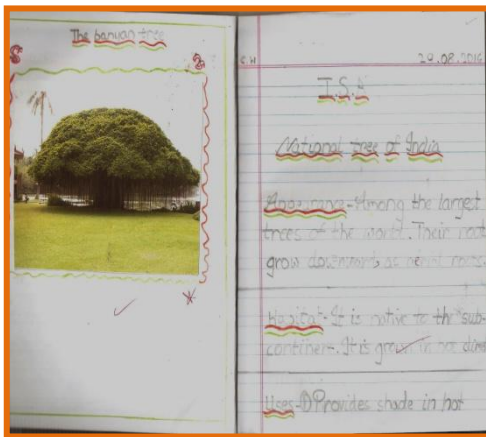 The banyan tree
C.W
29.08.2016
I.S.A
National tree of India
Appearance-Among the largest
trees of the world. Their root
grow downwards as aerial roots.
Habitat-It is native to the sub-
continent. It is grown in hot
Uses-① Provides shade in hot